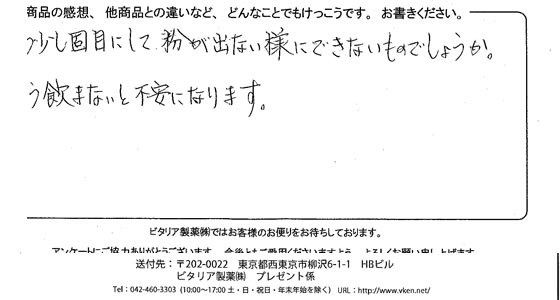 商品の感想、他商品との違いなど、どんなことでもけっこうです。お書きください。
少し固目にして粉が出ない様にできないものでしょうか。
う飲まないと不安になります。
ビタリア製薬㈱ではお客様のお便りをお待ちしております。
アンケートにご協力ありがとうございます。今後ともご愛用くださいますよう、よろしくお願い申し上げます
送付先：〒202-0022 東京都西東京市柳沢6-1-1 HBビル
ビタリア製薬㈱ プレゼント係
Tel：042-460-3303（10:00～17:00 土・日・祝日・年末年始を除く） URL：http://www.vken.net/